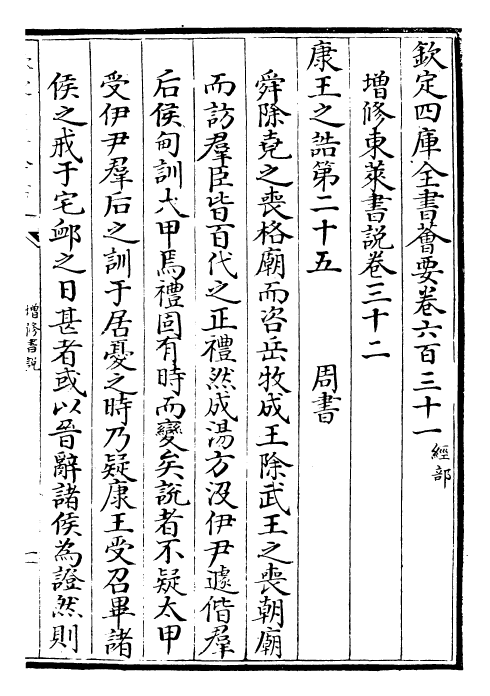 欽定四庫全書薈要卷六百三十一 經部
增修東萊書說卷三十二
康王之誥第二十五 周書
舜除堯之喪格廟而咨岳牧成王除武王之喪朝廟
而訪羣臣皆百代之正禮然成湯方沒伊尹遽偕羣
后侯甸訓太甲焉禮固有時而變矣說者不疑太甲
受伊尹羣后之訓于居憂之時乃疑康王受召畢諸
侯之戒于宅䘏之日甚者或以晉辭諸侯為證然則
增修書說